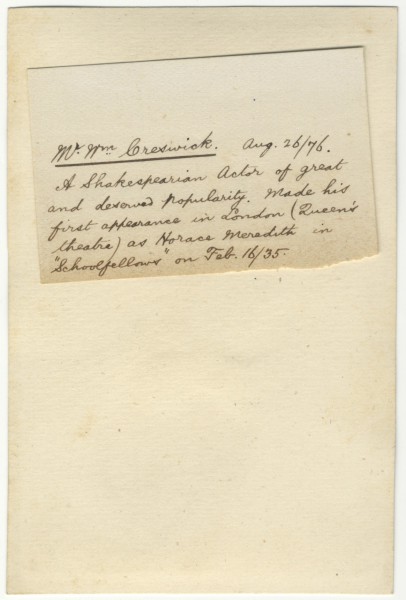 Mr. Wm Creswick. Aug. 26/76.
A Shakespearian Actor of great
and deserved popularity. Made his
first appearance in London (Queen's
theatre) as Horace Meredith in
"Schoolfellows" on Feb. 16/35.